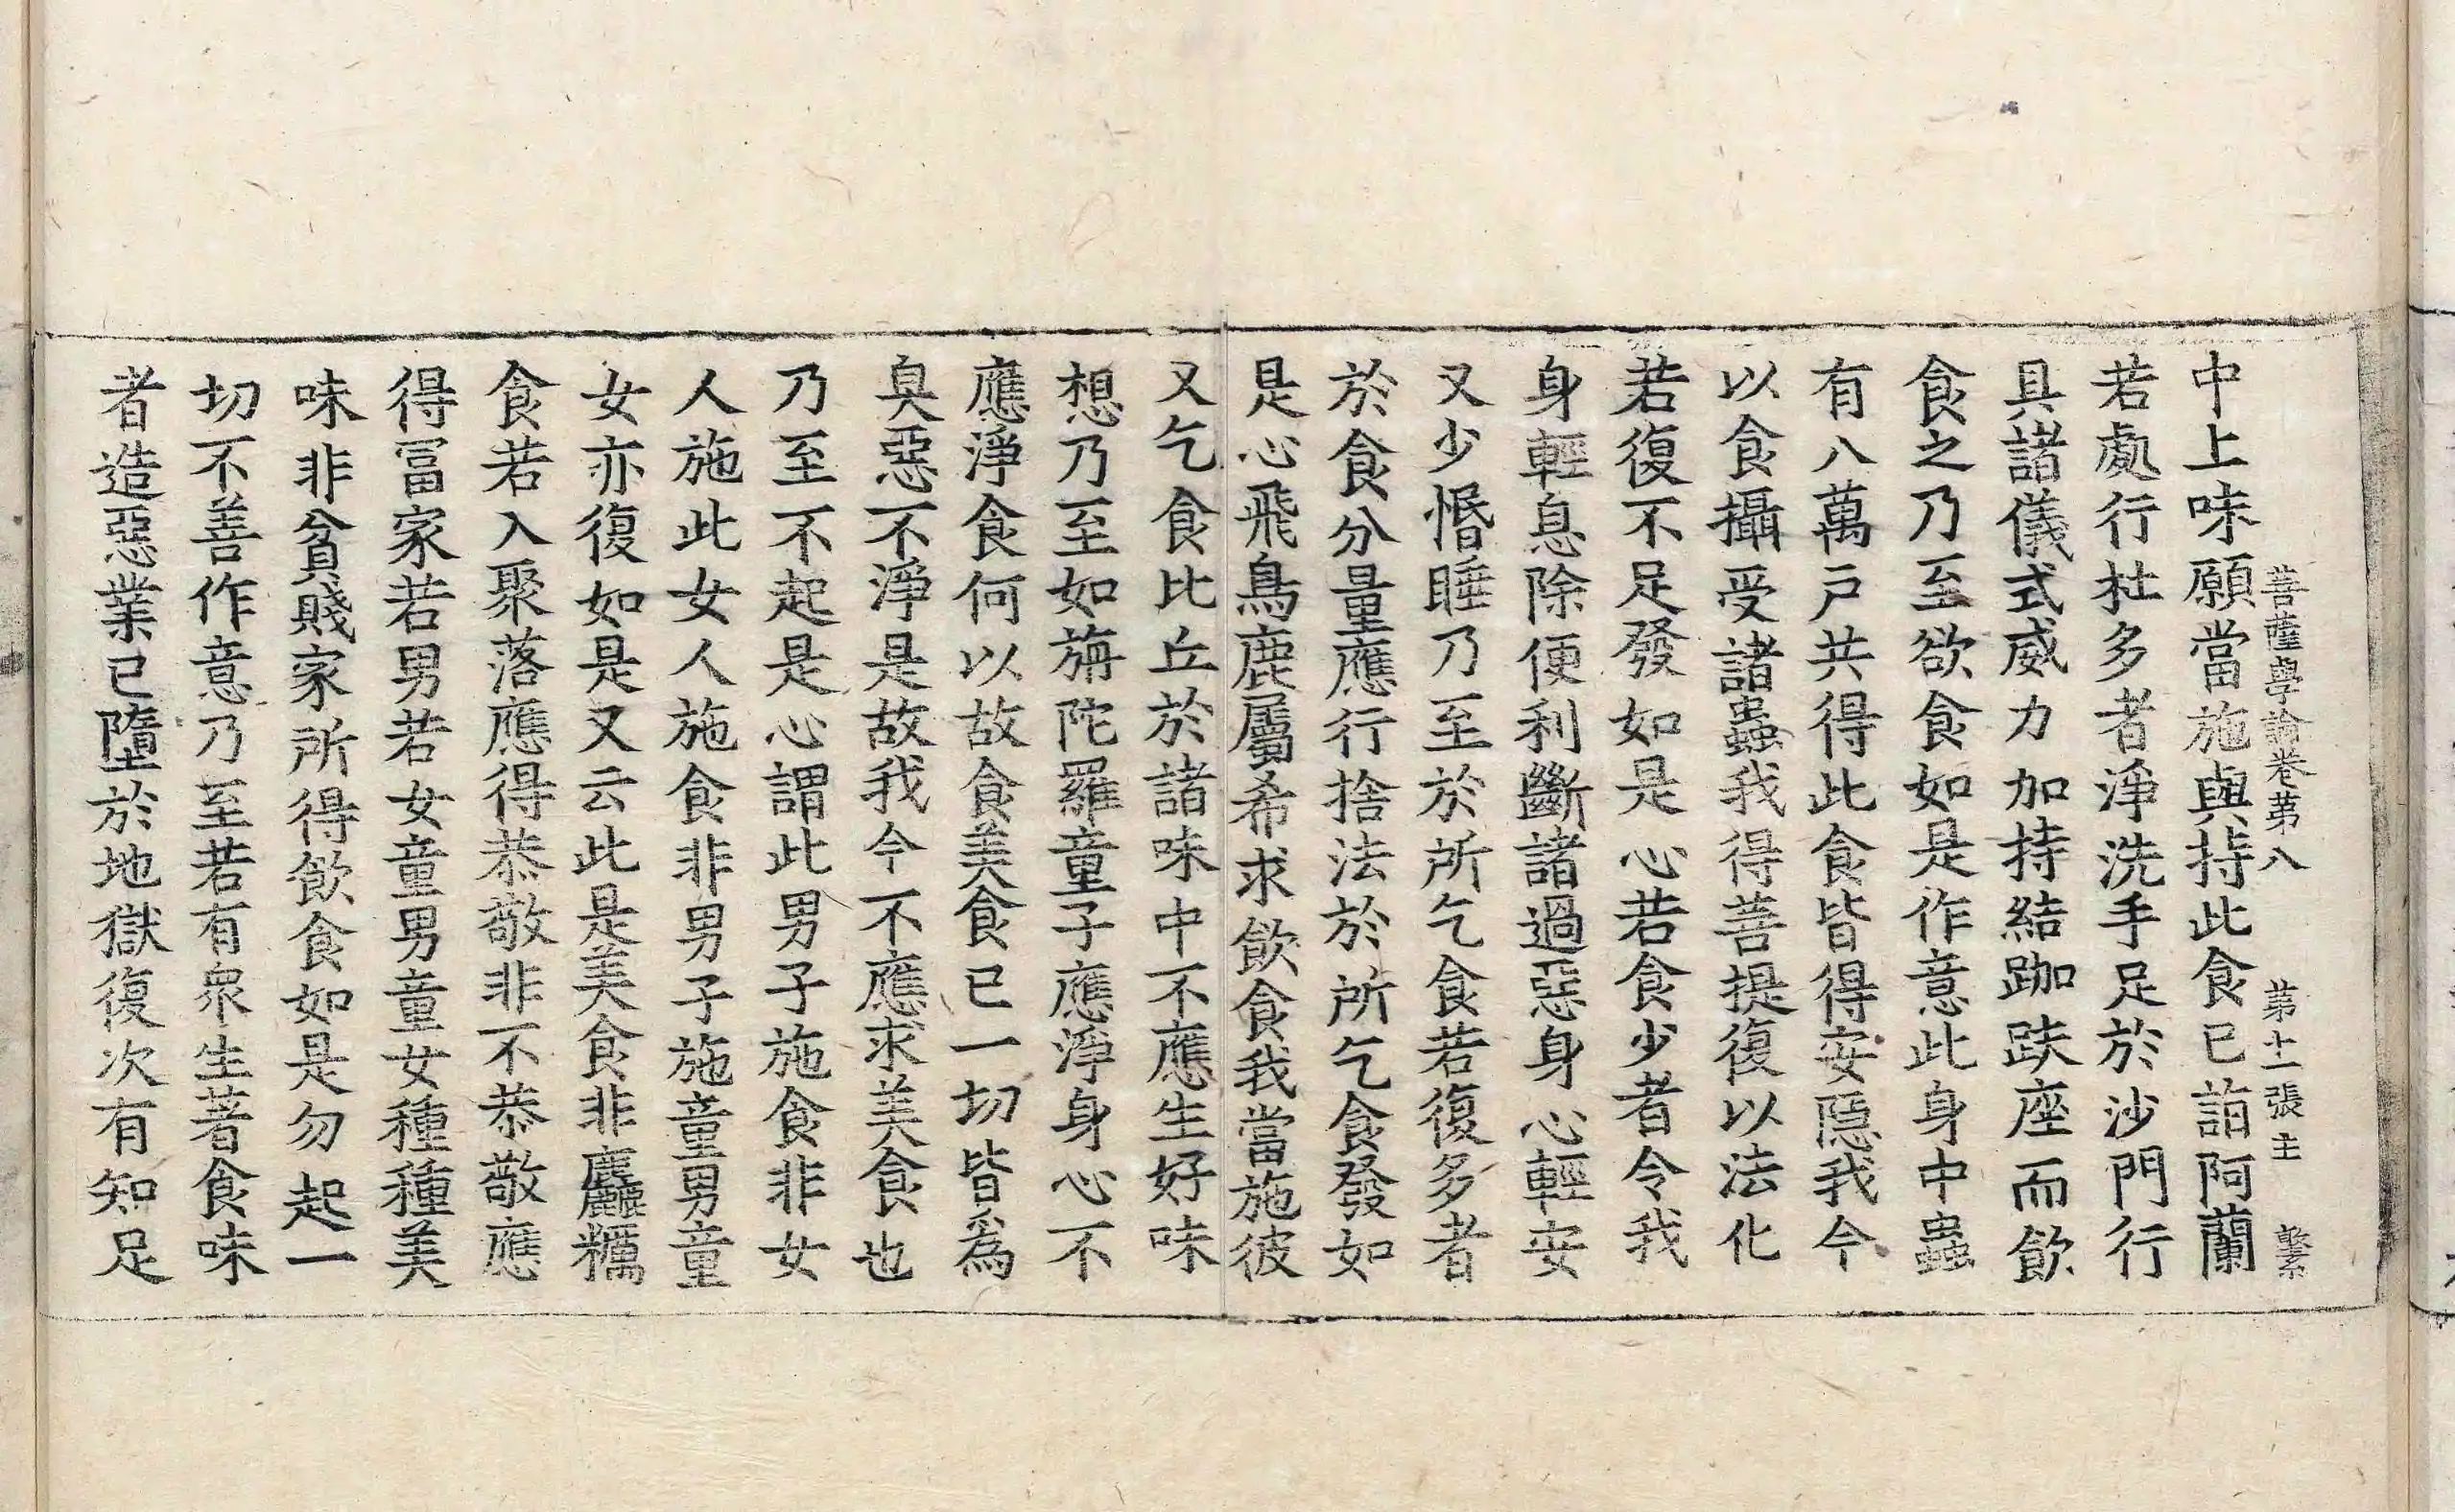 菩薩學論卷第八 第十一張 主
中上味願當施與持此食已詣阿蘭
若處行杜多者淨洗手足於沙門行
具諸儀式威力加持結跏趺座而飲
食之乃至欲食如是作意此身中蟲
有八萬戶共得此食皆得安隱我今
以食攝受諸蟲我得菩提復以法化
若復不足發如是心若食少者令我
身輕息除便利斷諸過惡身心輕安
又少惛睡乃至於所乞食若復多者
於食分量應行捨法於所乞食發如
是心飛鳥鹿屬希求飲食我當施彼
又乞食比丘於諸味中不應生好味
想乃至如旃陀羅童子應淨身心不
應淨食何以故食美食已一切皆爲
臭惡不淨是故我今不應求美食也
乃至不起是心謂此男子施食非女
人施此女人施食非男子施童男童
女亦復如是又云此是美食非麤糲
食若入聚落應得恭敬非不恭敬應
得冨家若男若女童男童女種種美
味非貧賤家所得飲食如是勿起一
切不善作意乃至若有衆生著食味
者造惡業已墮於地獄復次有知足